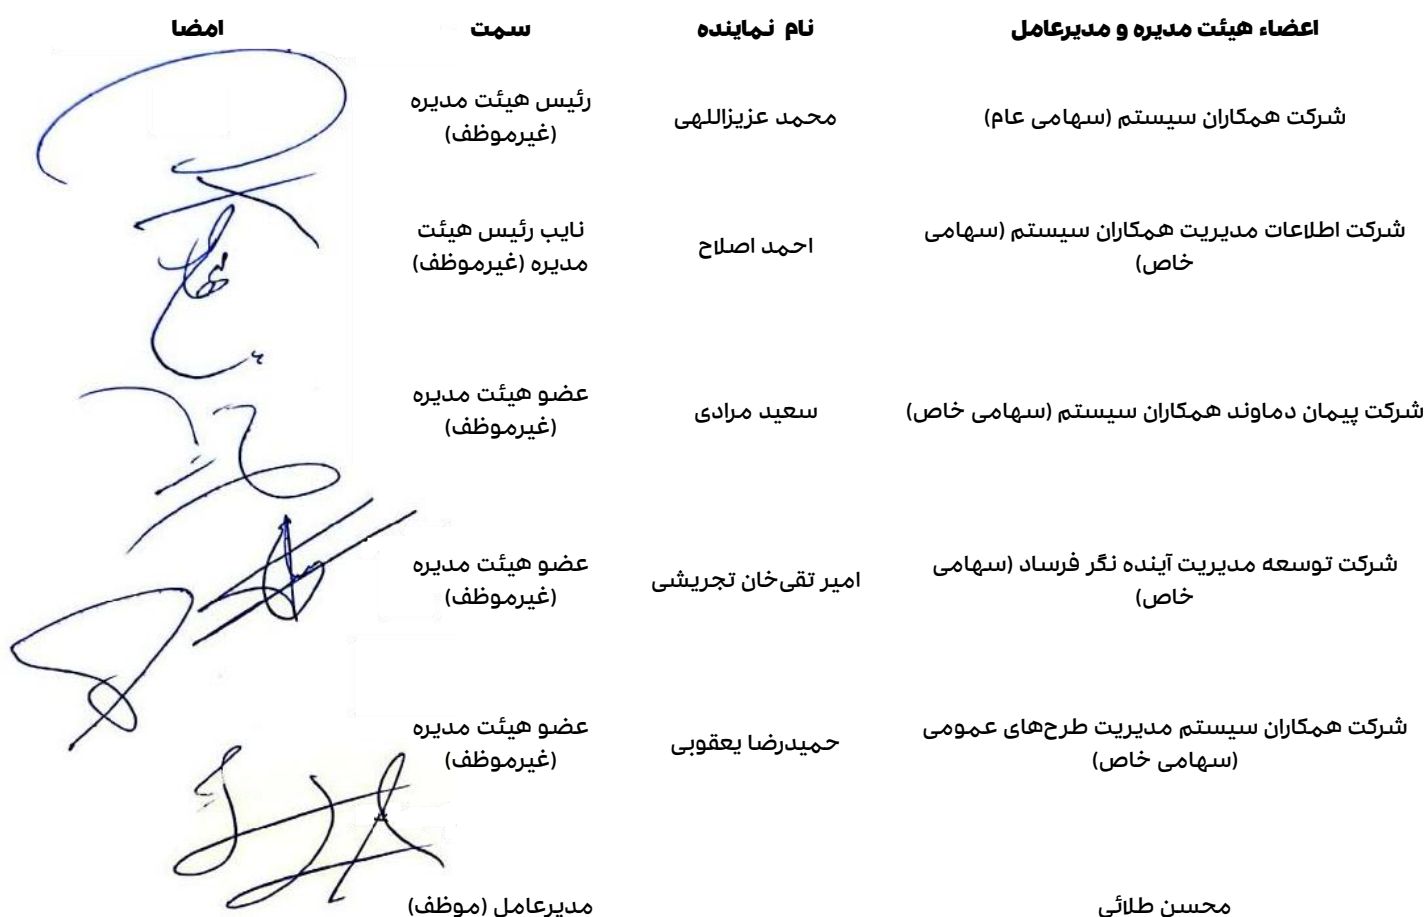 اعضاء هیئت مدیره و مدیرعامل	نام نماینده	سمت	امضا
شرکت همکاران سیستم (سهامی عام)	محمد عزیزاللهی	رئیس هیئت مدیره
(غیرموظف)
شرکت اطلاعات مدیریت همکاران سیستم (سهامی
خاص)	احمد اصلاح	نایب رئیس هیئت
مدیره (غیرموظف)
شرکت پیمان دماوند همکاران سیستم (سهامی خاص)	سعید مرادی	عضو هیئت مدیره
(غیرموظف)
شرکت توسعه مدیریت آینده نگر فرساد (سهامی
خاص)	امیر تقی‌خان تجریشی	عضو هیئت مدیره
(غیرموظف)
شرکت همکاران سیستم مدیریت طرح‌های عمومی
(سهامی خاص)	حمیدرضا یعقوبی	عضو هیئت مدیره
(غیرموظف)
محسن طلائی	مدیرعامل (موظف)